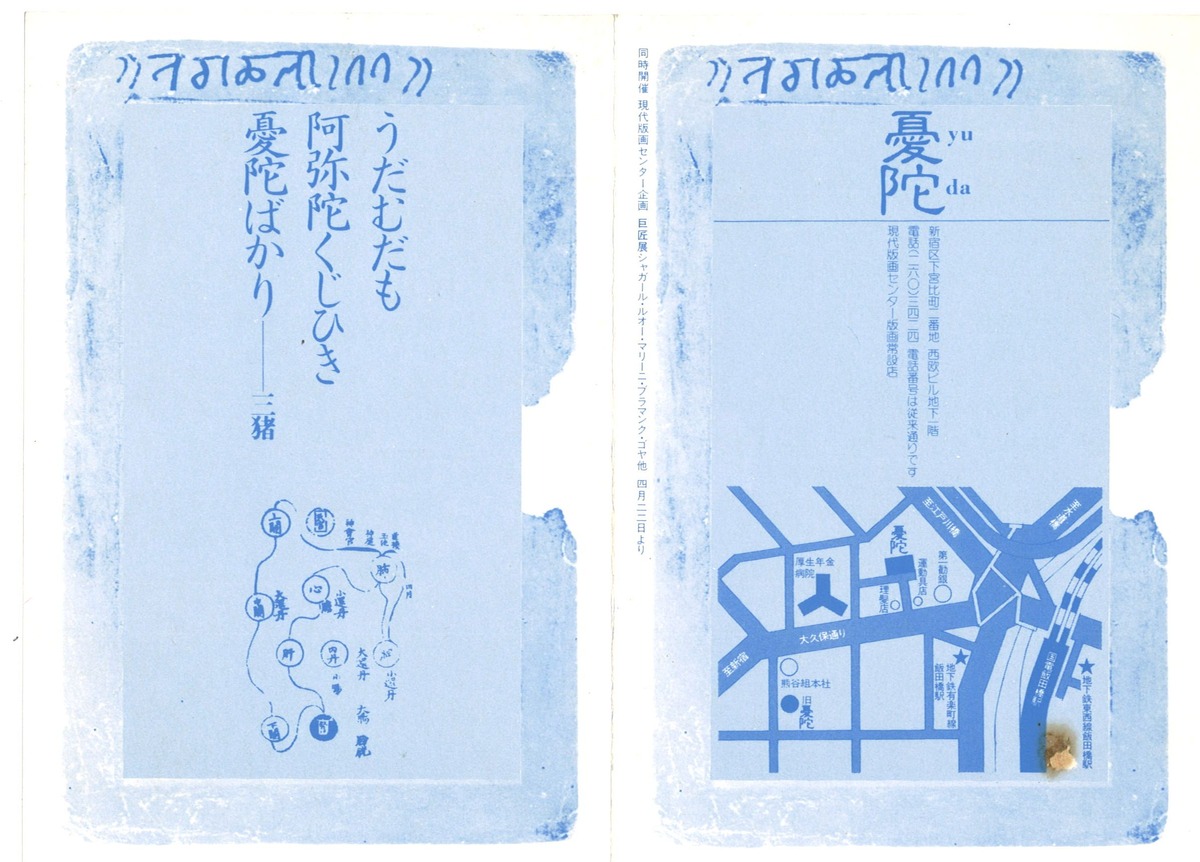 うだむだも
阿弥陀くじひき
憂陀ばかり――三猪
上關
神會宮
四月
肺
心
小還丹
中關
肝
四丹
大還丹
小還丹
下關
腎
同時開催 現代版画センター企画 巨匠展シャガール・ルオー・マリーニ・ブラマンク・ゴヤ他 四月二二日より
憂陀
yu
da
新宿区下宮比町二番地 西欧ビル地下一階
電話(二六〇)三四二四 電話番号は従来通りです
現代版画センター版画常設店
至江戸川橋
至水道橋
憂陀
厚生年金
病院
運動具店
第一勧銀
理髪店
大久保通り
至新宿
熊谷組本社
旧憂陀
地下鉄有楽町線
飯田橋駅
国電飯田橋駅
地下鉄東西線飯田橋駅